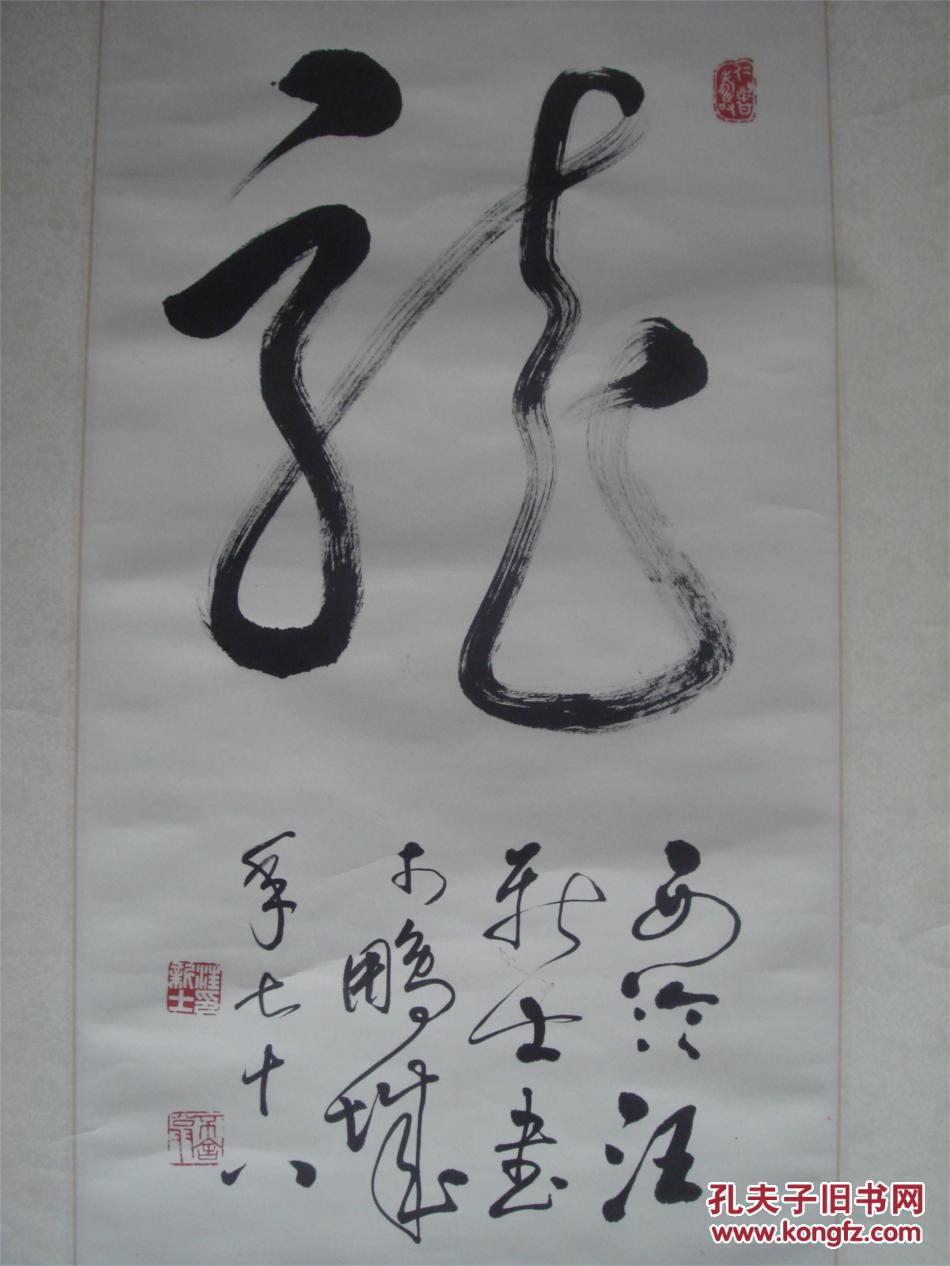 龍
西泠汪
新士書
於鵬城
年七十八
汪印
新士
孔夫子旧书网
www.kongfz.com